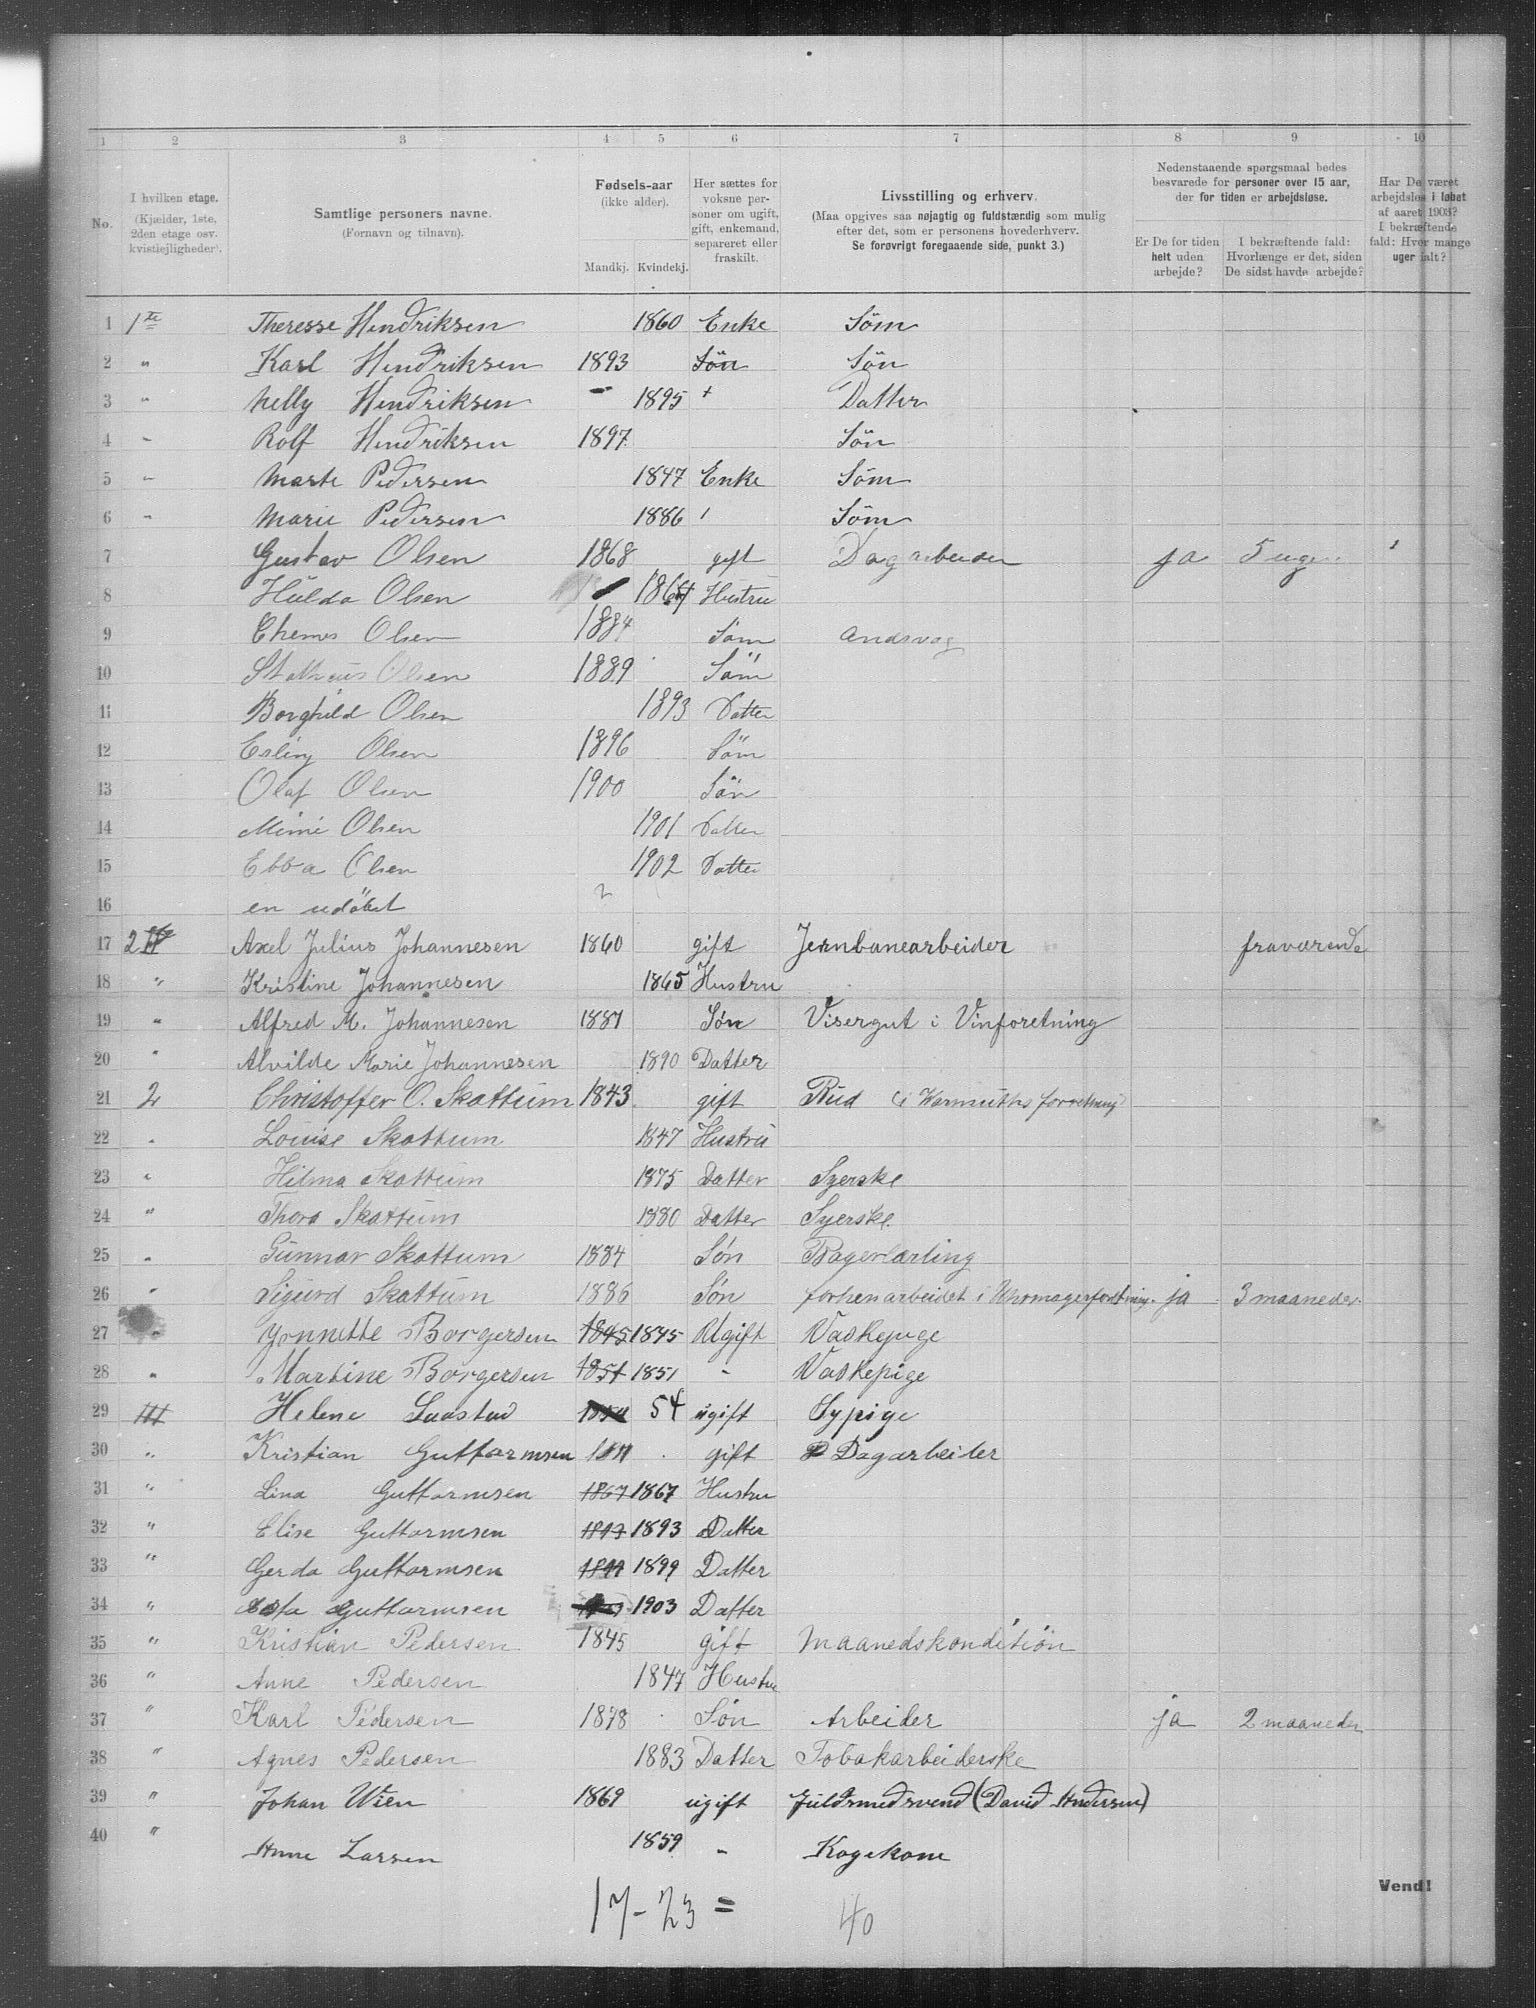 1 2 3 4 5 6 7 8 9 10
No. I hvilken etage. (Kjælder, 1ste, 2den etage osv. kvistlejligheder). Samtlige personers navne. (Fornavn og tilnavn). Fødsels-aar (ikke alder). Mandkj. Kvindekj. Her sættes for voksne personer om ugift, gift, enkemand, separeret eller fraskilt. Livsstilling og erhverv. (Maa opgives saa nøjagtig og fuldstændig som mulig efter det, som er personens hovederhverv. Se forøvrigt foregaaende side, punkt 3.) Nedenstaaende spørgsmaal bedes besvarede for personer over 15 aar, der for tiden er arbejdsløse. Er De for tiden helt uden arbejde? I bekræftende fald: Hvorlænge er det, siden De sidst havde arbejde? Har De været arbejdsløs i løbet af aaret 1903? I bekræftende fald: Hvor mange uger ialt?
1 1te Theresse Hendriksen 1860 Enke Söm
2 " Karl Hendriksen 1893 Sön Sön
3 " Nelly Hendriksen 1895 + Datter
4 " Rolf Hendriksen 1897 Sön
5 " Marte Pedersen 1847 Enke Söm
6 " Marie Pedersen 1886 Söm
7 Gustav Olsen 1868 gift Dagarbeider ja 5 uger
8 Hulda Olsen 1864 Hustru
9 Olsen 1884 Söm andsvag
10 Olsen 1889 Söm
11 Borghild Olsen 1893 Datter
12 Erling Olsen 1896 Söm
13 Olaf Olsen 1900 Sön
14 Mimi Olsen 1901 Datter
15 Ebba Olsen 1902 Datter
16 en udöbt
17 2 Axel Julius Johannesen 1860 gift Jernbanearbeider fraværende
18 " Kristine Johannesen 1865 Hustru
19 " Alfred M. Johannesen 1887 Søn Visergut i Vinforetning
20 " Alvilde Marie Johannesen 1890 Datter
21 2 Christoffer O. Skattum 1843 gift Bud (i Warmuths forretning)
22 " Louise Skattum 1847 Hustru
23 " Hilma Skattum 1875 Datter Syerske
24 " Thora Skattum 1880 Datter Syerske.
25 " Gunnar Skattum 1884 Søn Bagerlærling
26 " Sigurd Skattum 1886 Søn forhen arbeidet i Uhrmagerforetning. ja 3 maaneder.
27 " Jonnette Borgersen 1845 1845 Ugift Vaskepige
28 " Martine Borgersen 1851 1851 " Vaskepige
29 III Helene Saastad 54 ugift Sypige
30 " Kristian Guttormsen gift Dagarbeider
31 " Lina Guttormsen 1867 1867 Hustru
32 " Elise Guttormsen 1893 1893 Datter
33 " Gerda Guttormsen 1899 1899 Datter
34 " Guttormsen 1903 Datter
35 " Kristian Pedersen 1845 gift Maanedskonditiön
36 " Anne Pedersen 1847 Hustru
37 " Karl Pedersen 1878 Søn Arbeider ja 2 maaneder
38 " Agnes Pedersen 1883 Datter Tobakarbeiderske
39 " Johan Wien 1869 ugift Guldsmedsvend (David Andersen)
40 " Anne Larsen 1859 " Kogekone
Vend!
17 - 23 = 40